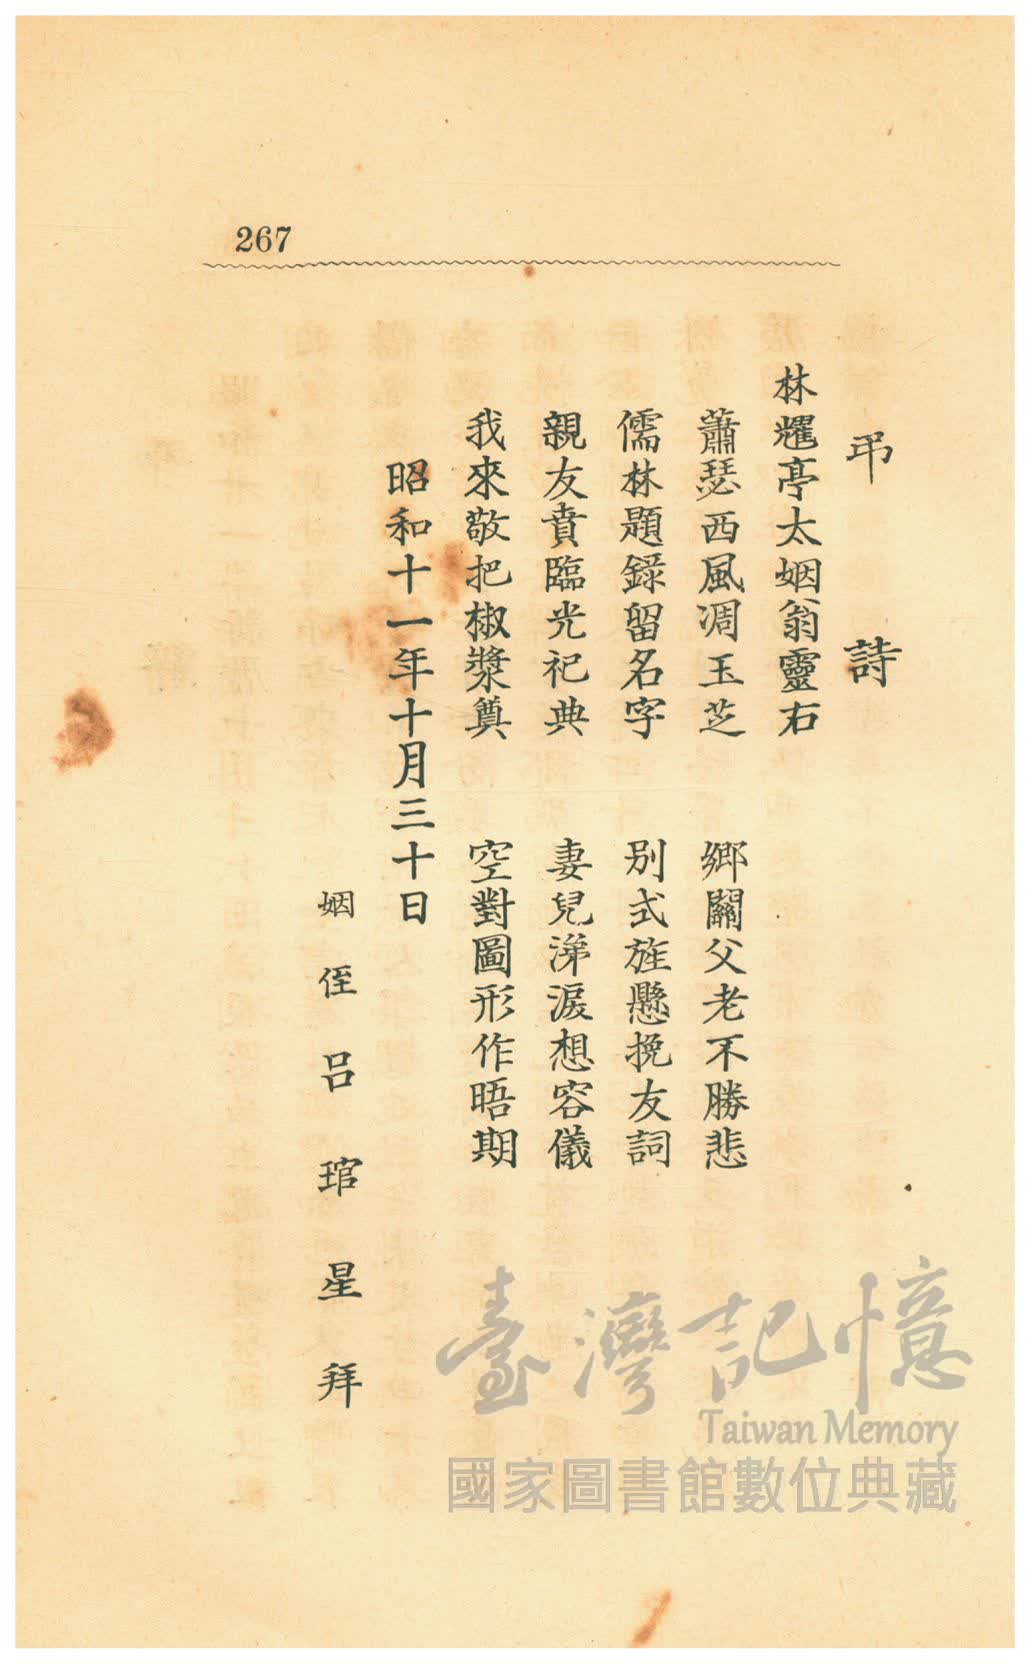 267
弔詩
林耀亭太姻翁靈右
蕭瑟西風凋玉芝　鄉關父老不勝悲
儒林題錄留名字　別式旌懸挽友詞
親友賁臨光祀典　妻兒涕淚想容儀
我來敬把椒漿奠　空對圖形作晤期
昭和十一年十月三十日
姻侄呂琯星拜
臺灣記憶
Taiwan Memory
國家圖書館數位典藏